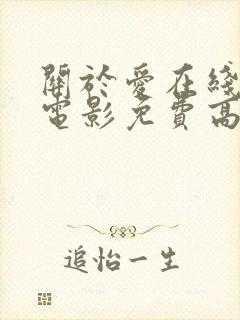 關於愛在綫
電影免費高
追怡一生